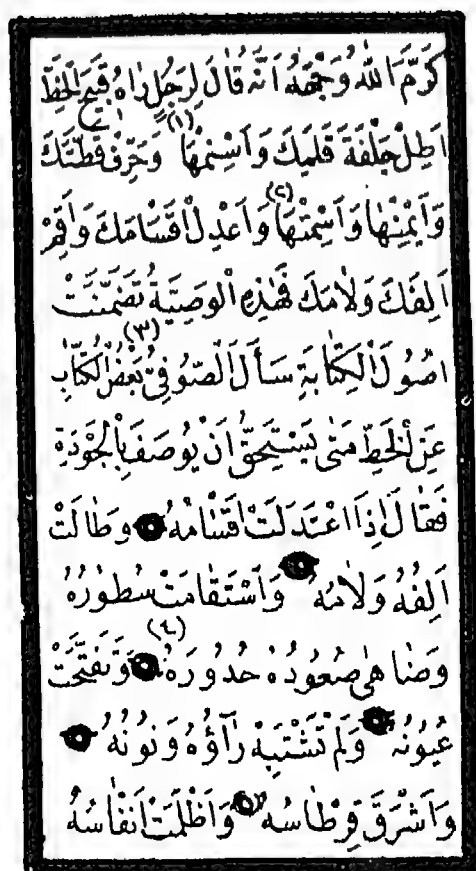 كَرَّمَ اللّٰهُ وَجْهَهُ اَنَّهُ قَالَ لِرَجُلٍ رَاٰهُ قَبِيحَ الْخَطِّ
اَطِلْ جِلْفَةَ قَلَمِكَ وَاَسْمِنْهَا (١) وَحَرِّفْ قَطَّتَكَ
وَاَيْمِنْهَا وَاَسْمِتْهَا (٢) وَاَعْدِلْ اَقْسَامَكَ وَاَقِمْ
اَلِفَكَ وَلَامَكَ فَهٰذِهِ الْوَصِيَّةُ تَضَمَّنَتْ
اُصُولَ الْكِتَابَةِ (٣) سَأَلَ الصُّوفِيُّ بَعْضَ الْكُتَّابِ
عَنِ الْخَطِّ مَتٰى يَسْتَحِقُّ اَنْ يُوصَفَ بِالْجَوْدَةِ
فَقَالَ اِذَا اعْتَدَلَتْ اَقْسَامُهُ وَطَالَتْ
اَلِفُهُ وَلَامُهُ وَاَسْتَقَامَتْ سُطُورُهُ
وَضَاهٰى صُعُودُهُ حُدُورَهُ (٤) وَتَفَتَّحَتْ
عُيُونُهُ وَلَمْ تَشْتَبِهْ رَاَؤُهُ وَنُونُهُ
وَاَشْرَقَ قِرْطَاسُهُ وَاَظْلَمَتْ اَنْقَاسُهُ